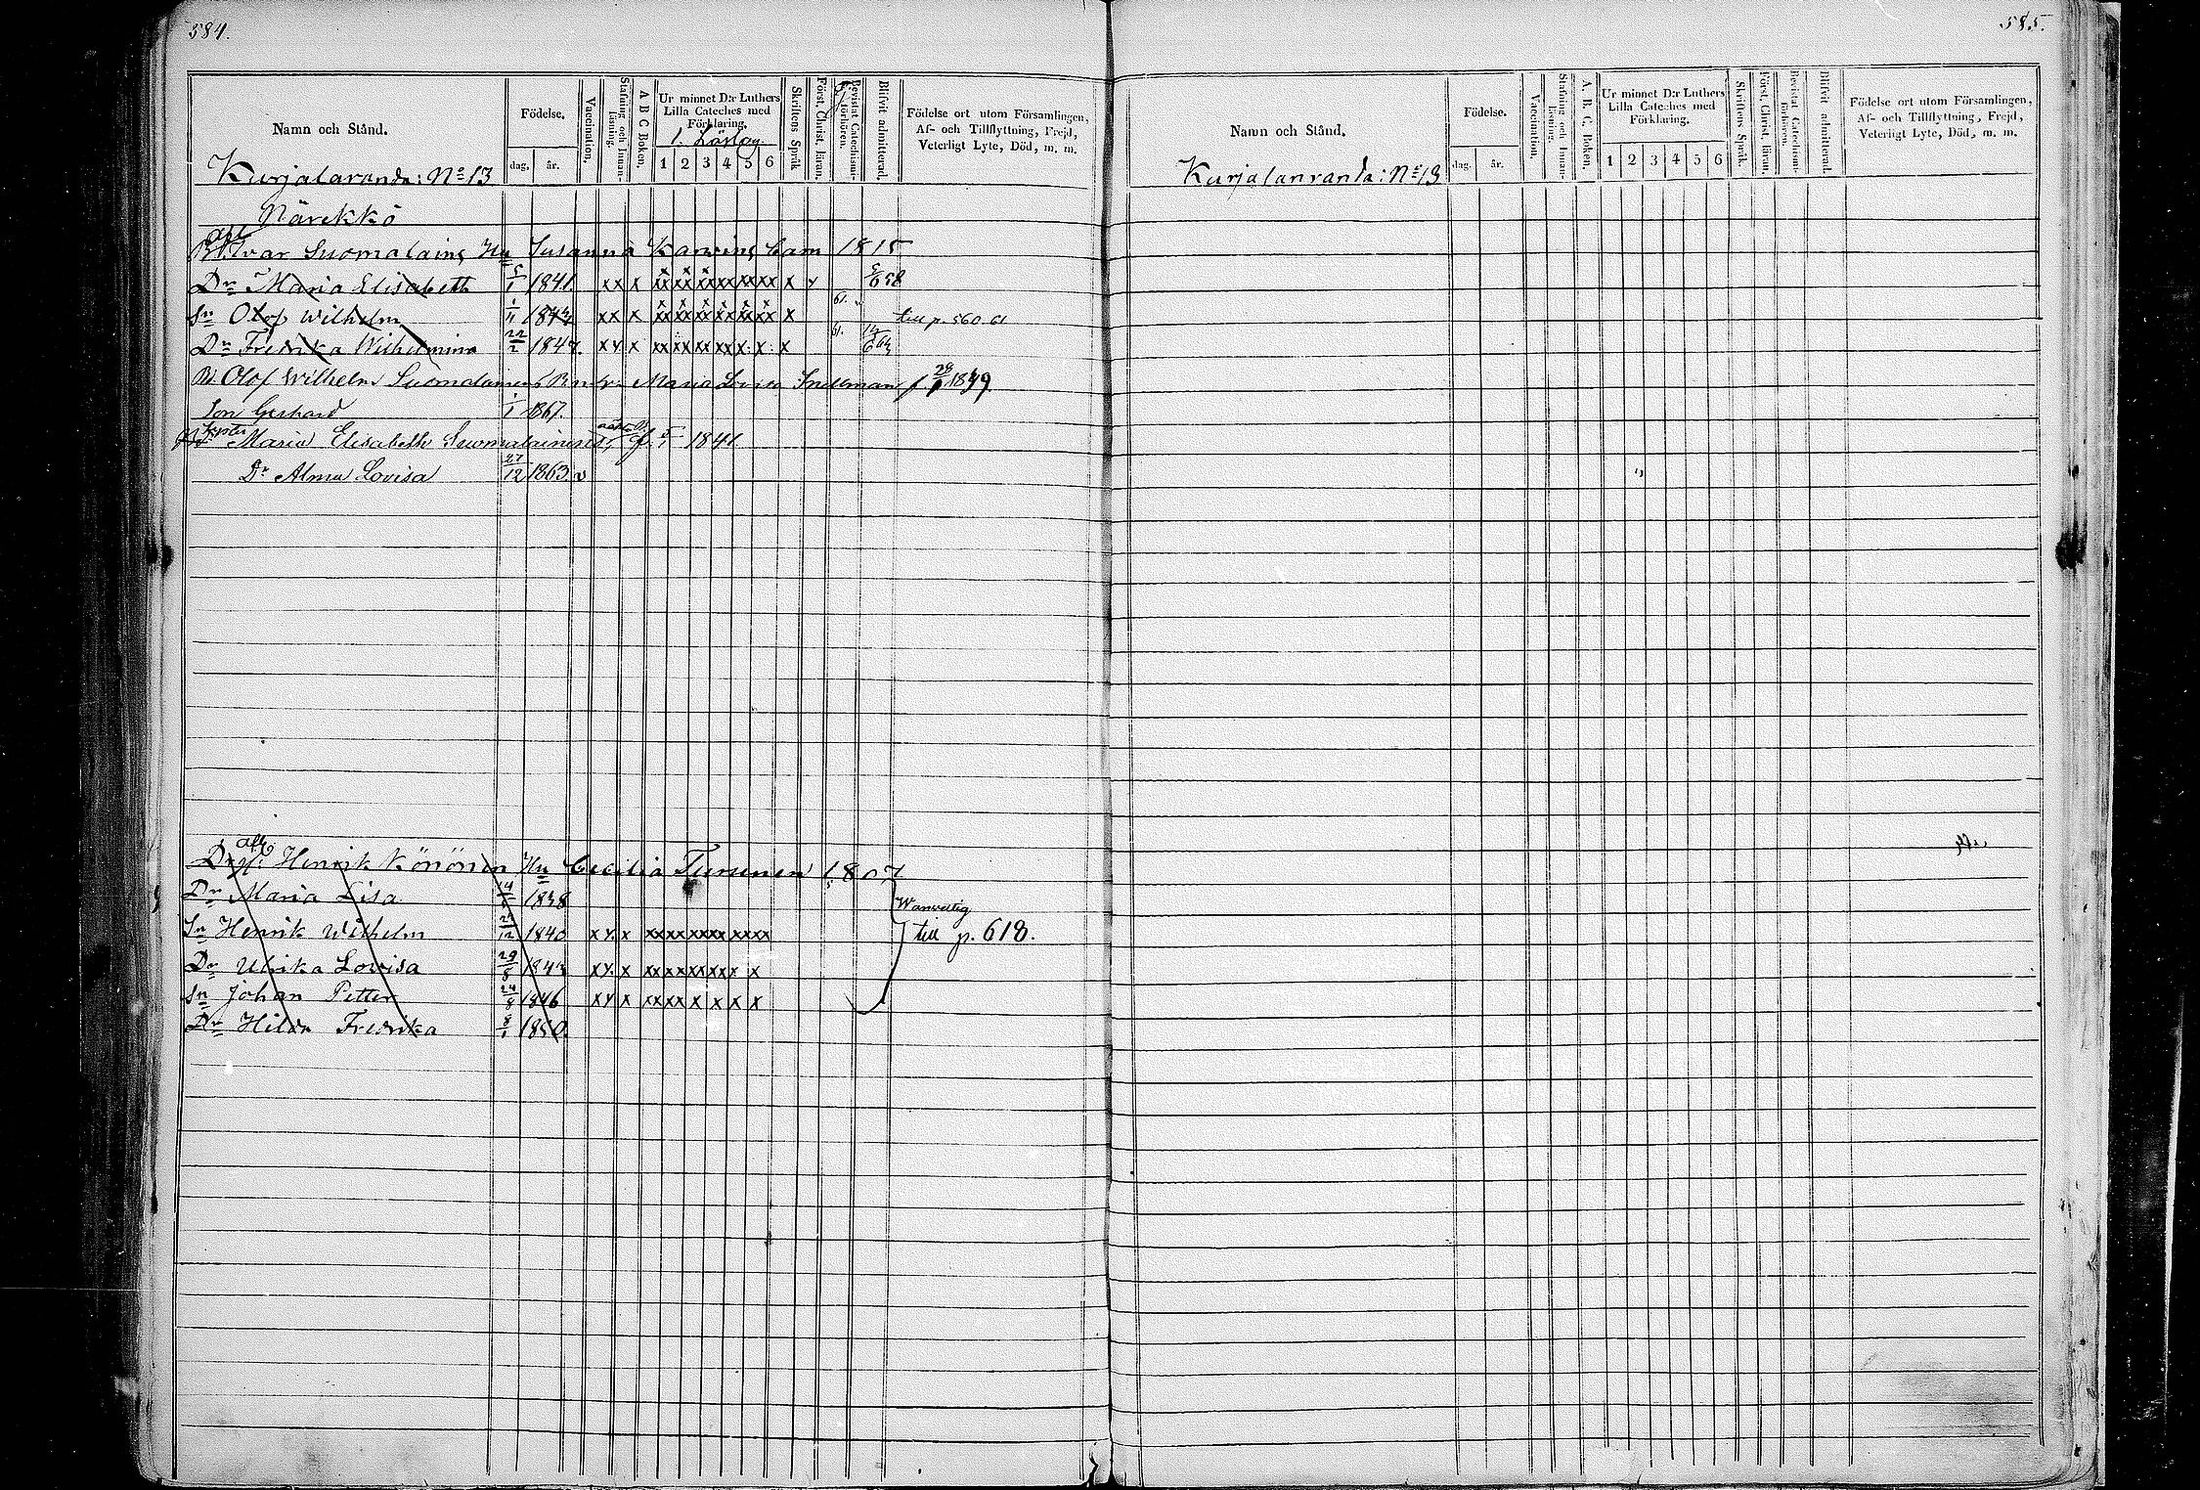 584.
Namn och Stånd.
Födelse.
dag.
år.
Vaccination.
Stafning och Innan-läsning.
A B C Boken.
Ur minnet D:r Luthers
Lilla Cateches med
Förklaring.
1. Läsløg.
1 2 3 4 5 6
Skriftens Språk
Först. Christ. läran.
Bevistat Catechismi-förhören.
Blifvit admitterad.
Födelse ort utom Församlingen,
Af- och Tillflyttning, Frejd,
Veterligt Lyte, Död, m. m.
Kurjalaranda: No 13
Närekkö
Ivar Suomalains Hu Susanna Karvins Cam 1815
Dr Maria Elisabeth 5/1 1841 xx x x 5/6 58
Sn Olof Wilhelm 1/11 1844 xx x x 61. till p. 560. 61
Dr Fredrika Wilhelmina 22/2 1847. xx x x 61.
Bd. Olof Wilhelm Suomalainen Maria Lovisa Snellman f. 1849
Son Gerhard 1/1 1867.
Maria Elisabeth Suomalainen f. 5/1 1841
Dr Alma Lovisa 27/12 1863. v
afl
Henrik Könönen Hu Cecilia Tursunen 1807
Dr Maria Lisa 1838
Sn Henrik Wilhelm 1840 xx x xxxxxxxx xxxx
Dr Ulrika Lovisa 29/8 1843 xx x xxxxxxxxx x
Sn Johan Petter 24/8 1846 xx x xxxx x x x x
Dr Hilda Fredrika 8/1 1850.
Wanvettig
till p. 618.
585.
Namn och Stånd.
Födelse.
dag.
år.
Vaccination.
Stafning och Innan-läsning.
A. B. C. Boken.
Ur minnet D:r Luthers
Lilla Cateches med
Förklaring.
1 2 3 4 5 6
Skriftens Språk.
Först. Christ. läran.
Bevistat Catechism-förhören.
Blifvit admitterad.
Födelse ort utom Församlingen,
Af- och Tillflyttning, Frejd,
Veterligt Lyte, Död, m. m.
Kurjalanranda: No 13